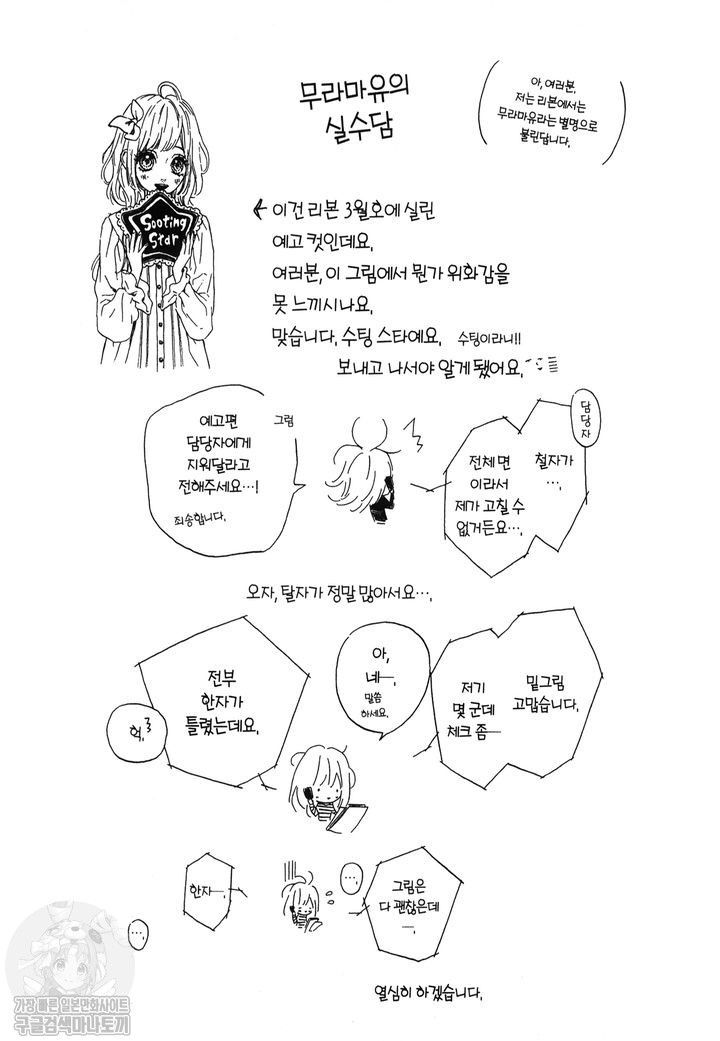 무라마유의
실수담
아, 여러분.
저는 리본에서는
무라마유라는 별명으로
불린답니다.
Sooting
Star
← 이건 리본 3월호에 실린
예고 컷인데요.
여러분, 이 그림에서 뭔가 위화감을
못 느끼시나요.
맞습니다. 수팅 스타예요.
수팅이라니!!
보내고 나서야 알게 됐어요.
담당자
철자가
….
전체 면
이라서
제가 고칠 수
없거든요….
그럼
예고편
담당자에게
지워달라고
전해주세요…!
죄송합니다.
오자, 탈자가 정말 많아서요….
밑그림
고맙습니다.
저기
몇 군데
체크 좀—
아,
네—.
말씀
하세요.
전부
한자가
틀렸는데요.
헉.
그림은
다 괜찮은데
—.
….
한자—.
….
열심히 하겠습니다.
가장 빠른 일본만화사이트
구글검색마나토끼